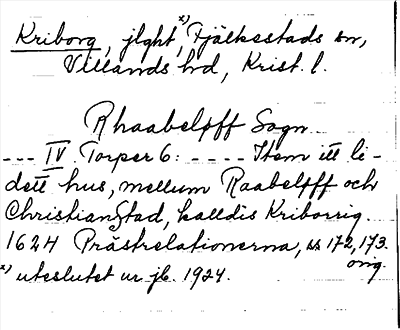 Kriborg, jlght, x) Fjälkestads sn,
Villands hd, Krist. l.
Rhaabeløff Sogn
--- IV Torper 6: ---- Item itt li-
dett hus, mellum Raabeløff och
Christianstad, kalldis Kriborrig.
1624 Prästrelationerna, ss 172, 173.
orig.
x) uteslutet ur jb. 1924.